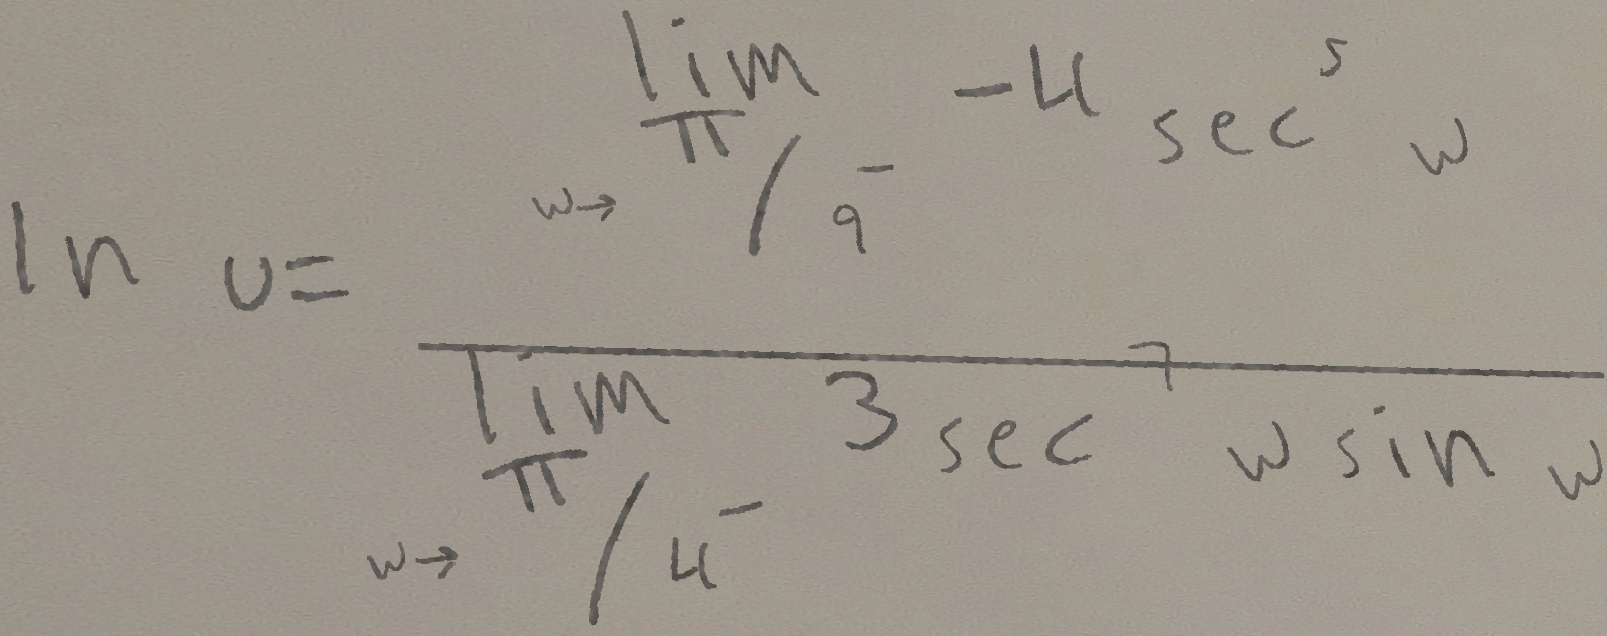 ln υ = \frac{\lim_{w→π/9^-} -4 sec^5 w}{\lim_{w→π/4^-} 3 sec^7 w sin w}